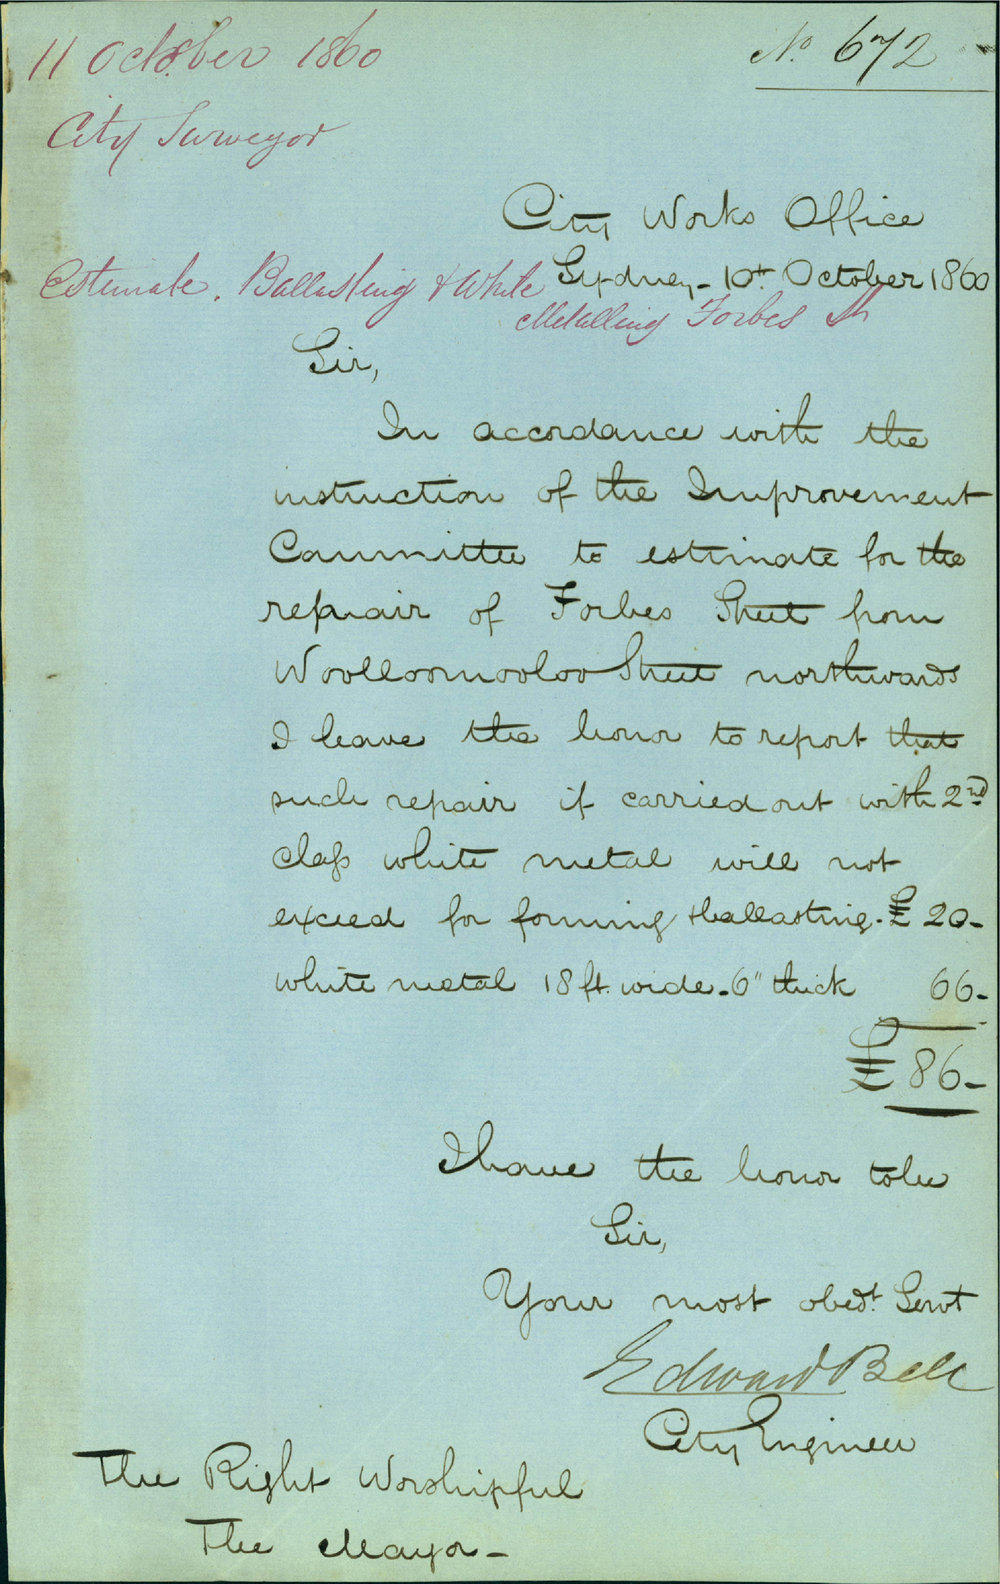 11 October 1860
No. 672
City Surveyor
City Works Office
Sydney - 10th October 1860
Estimate. Ballasting & White
Metalling Forbes St
Sir,
In accordance with the
instruction of the Improvement
Committee to estimate for the
repair of Forbes Street from
Woolloomooloo Street northwards
I have the honor to report that
such repair if carried out with 2nd
class white metal will not
exceed for forming & ballasting - £ 20 -
white metal 18 ft. wide - 6" thick 66 -
£ 86 -
I have the honor to be
Sir,
Your most obedt. Servt
Edward Bell
City Engineer
The Right Worshipful
The Mayor -